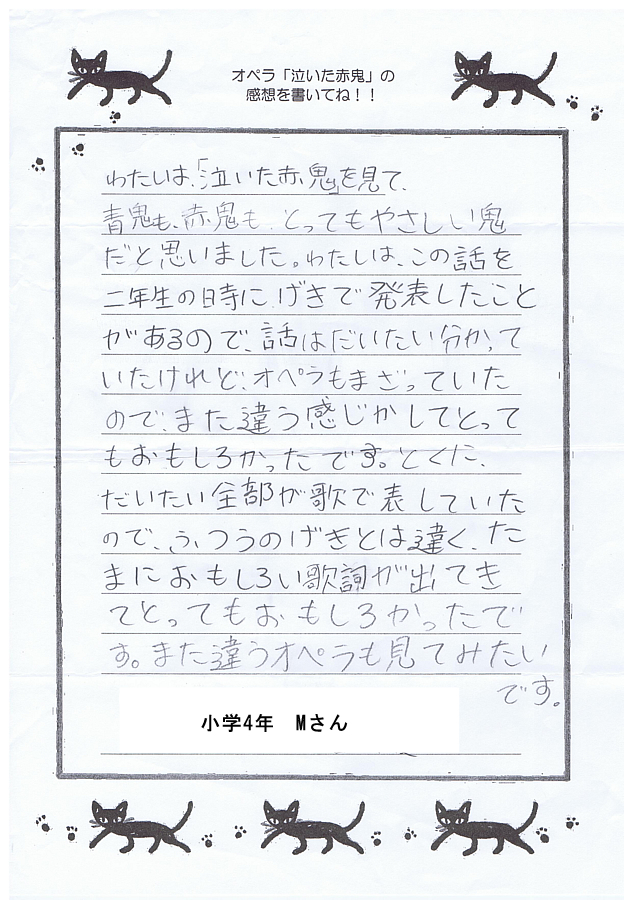 オペラ「泣いた赤鬼」の
感想を書いてね！！
わたしは、「泣いた赤鬼」を見て、
青鬼も、赤鬼も、とってもやさしい鬼
だと思いました。わたしは、この話を
二年生の日寺に、げきで発表したこと
があるので、話はだいたい分かって
いたけれど、オペラもまざっていた
ので、また違う感じかしてとって
もおもしろかったです。とくに、
だいたい全部が歌で表していた
ので、ふつうのげきとは違く、た
まにおもしろい歌詞が出てき
てとってもおもしろかったで
す。また違うオペラも見てみたい
です。
小学4年　Mさん